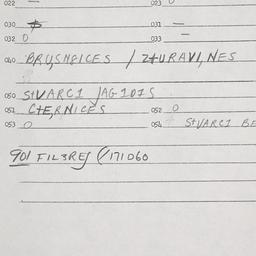 022 — 023 0
030 $ 031 —
032 0 033 —
040 BRUSNBICES / ZTURAVI, NES
050 StVARCI JAG101S
051 CTERNICES 052 0
053 0 054 StVARCI BE
901 FIL3REJ (/171060